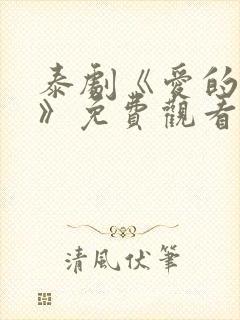 泰劇《愛的
》免費觀看
清風伏筆